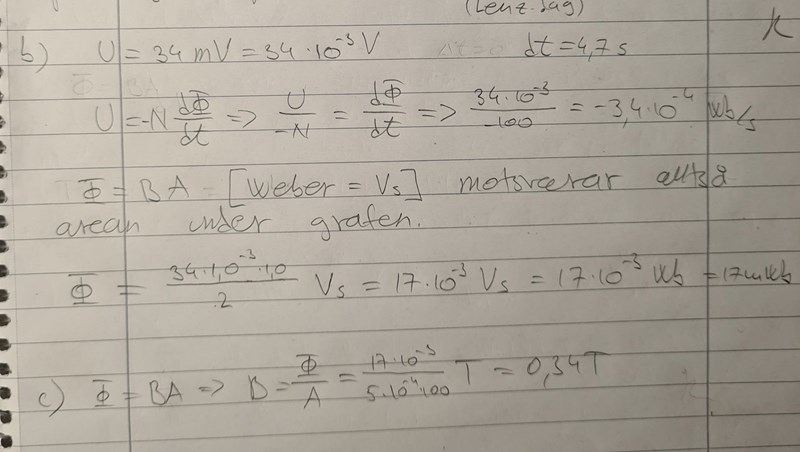 (Lenz. lag)
b) U = 34 mV = 34 · 10⁻³ V dt = 4,7 s
U = -N dΦ/dt => U/-N = dΦ/dt => 34·10⁻³/-100 = -3,4·10⁻⁴ Wb/s
Φ = BA = [Weber = Vs] motsvarar alltså
arean under grafen.
Φ = 34·1,0⁻³·1,0/2 Vs = 17·10⁻³ Vs = 17·10⁻³ Wb = 17mWb
c) Φ = BA => B = Φ/A = 17·10⁻³/5·10⁻⁴·100 T = 0,34T